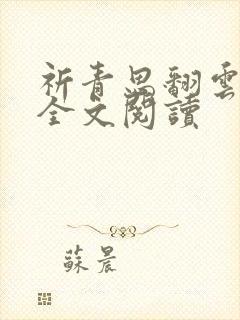 祈青思翻雲
全文閱讀
蘇晨